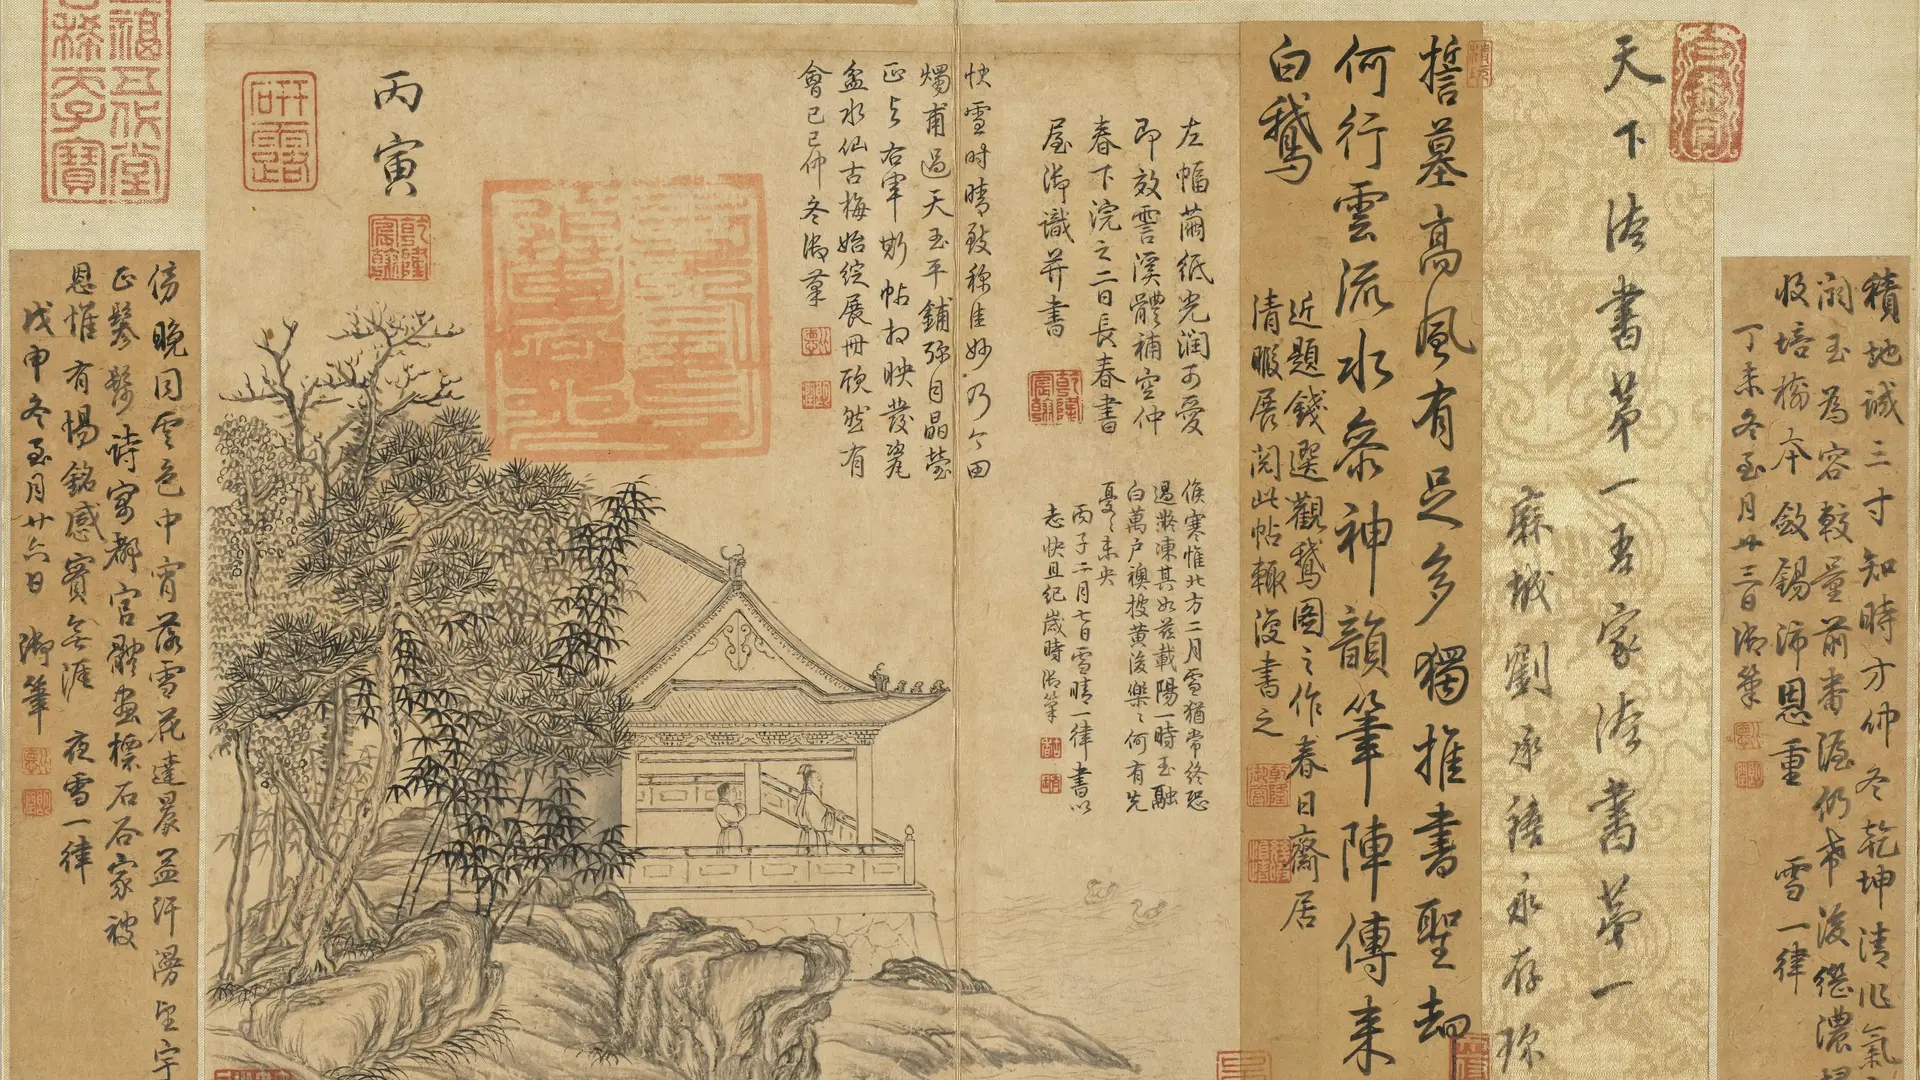 積地誠三寸知時才仲冬乾坤清
潤玉為容較量前番渥仍希後繼濃
收培榆本敛錫沛恩重 雪一律
丁未冬至月廿三日御筆
天下法書第一吾家法書第一
麻城劉承禧永存珍
誓墓高風有足多獨推書聖却
何行雲流水參神韻筆陣傳來
白鵝
近題錢選觀鵝圖之作春日齋居
清暇展閱此帖輒復書之
左幅繭紙光潤可愛
即效雪溪體補空仲
春下浣之二日長春書
屋御識并書
候寒惟北方二月雪猶常終恐
過凝凍其如茲載陽一時玉融
白萬戶襖披黄後樂何有先
憂未央
丙子二月七日雪晴一律書以
志快且紀歲時御筆
快雪時晴致稱佳妙乃今田
燭甫過天玉平鋪弥目晶瑩
正與右軍斯帖相映發瓷
盆水仙古梅始綻展冊欣然有
會己巳仲冬御筆
丙寅
乾隆宸翰
研露
五福五代堂古稀天子寶
傍晚同雲色中宵落雪花達晨益
正鬖髿詩寓都官體畫標石谷家被
恩惟有惕銘感實無涯 夜雪一律
戊申冬至月廿六日 御筆